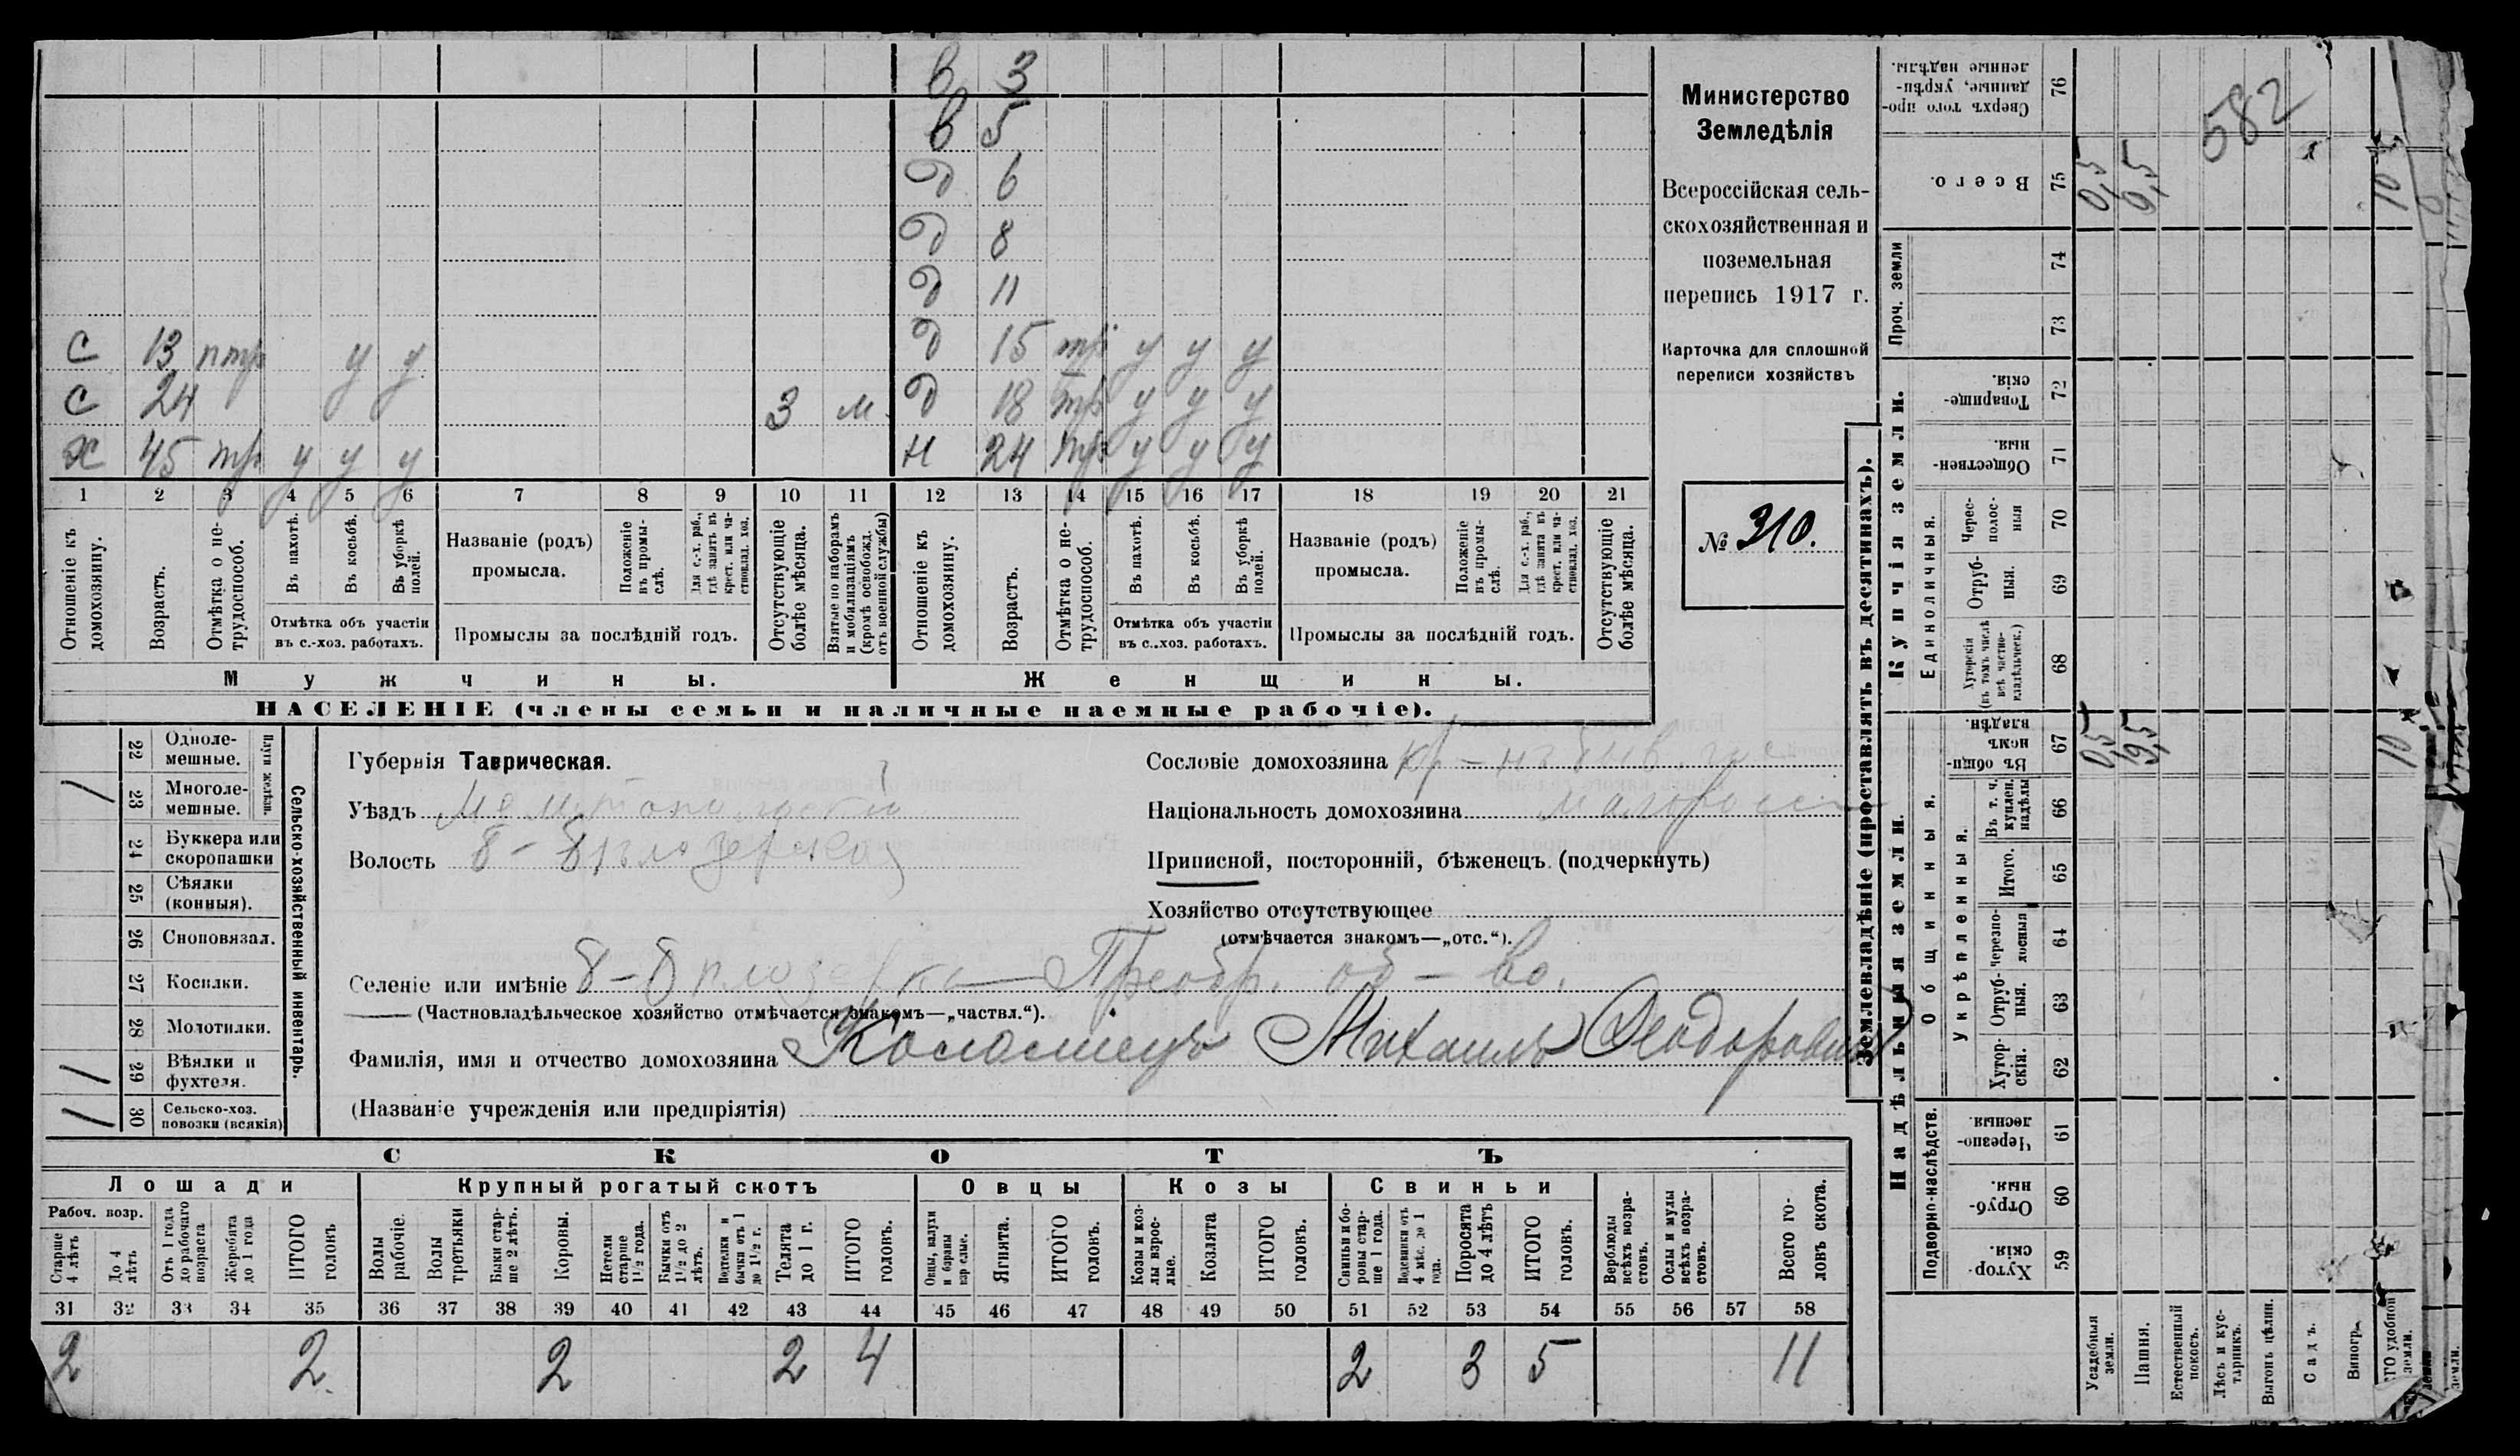 в 3
в 5
д 6
д 8
д 11
с 13 птр у у д 15 тр у у у
с 24 3 м. д 18 тр у у у
х 45 тр у у у н 24 тр у у у
1 2 3 4 5 6 7 8 9 10 11 12 13 14 15 16 17 18 19 20 21
Отношеніе къ домохозяину.
Возрастъ.
Отмѣтка о нетрудоспособ.
Въ пахотѣ.
Въ косьбѣ.
Въ уборкѣ полей.
Отмѣтка объ участіи
въ с.-хоз. работахъ.
Названіе (родъ)
промысла.
Положеніе въ промыслѣ.
Для с.-х. раб., гдѣ занятъ въ крест. или частновлад. хоз.
Промыслы за послѣдній годъ.
Отсутствующіе болѣе мѣсяца.
Взятые по наборамъ и мобилизаціямъ (кромѣ освобожд. отъ военной службы)
Отношеніе къ домохозяину.
Возрастъ.
Отмѣтка о нетрудоспособ.
Въ пахотѣ.
Въ косьбѣ.
Въ уборкѣ полей.
Отмѣтка объ участіи
въ с..хоз. работахъ.
Названіе (родъ)
промысла.
Положеніе въ промыслѣ.
Для с.-х. раб., гдѣ занята въ крест. или частновлад. хоз.
Промыслы за послѣдній годъ.
Отсутствующіе болѣе мѣсяца.
Мужчины. Женщины.
НАСЕЛЕНІЕ (члены семьи и наличные наемные рабочіе).
Министерство
Земледѣлія
Всероссійская сель-
скохозяйственная и
поземельная
перепись 1917 г.
Карточка для сплошной
переписи хозяйствъ
№ 310.
Сельско-хозяйственный инвентарь.
Плуги желѣзн.
22 Одноле-
мешные.
/ 23 Многоле-
мешные.
24 Буккера или
скоропашки
25 Сѣялки
(конныя).
26 Сноповязал.
27 Косилки.
28 Молотилки.
/ 29 Вѣялки и
фухтеля.
/ 30 Сельско-хоз.
повозки (всякія)
Губернія Таврическая.
Уѣздъ Мелитопольскій
Волость
Сословіе домохозяина
Національность домохозяина малоросс
Приписной, посторонній, бѣженецъ (подчеркнуть)
Хозяйство отсутствующее
(отмѣчается знакомъ—„отс.“).
Селеніе или имѣніе Преобр. об-во.
(Частновладѣльческое хозяйство отмѣчается знакомъ—„частвл.“).
Фамилія, имя и отчество домохозяина Коломіецъ Михаилъ Феодоровичъ
(Названіе учрежденія или предпріятія)
СКОТЪ
Лошади Крупный рогатый скотъ Овцы Козы Свиньи
Рабоч. возр.
Старше 4 лѣтъ
До 4 лѣтъ
Отъ 1 года до рабочаго возраста
Жеребята до 1 года
ИТОГО головъ
Волы рабочіе.
Волы третьяки.
Быки старше 2 лѣтъ.
Коровы.
Нетели старше 1 1/2 года.
Бычки отъ 1 1/2 до 2 лѣтъ.
Подтелки и бычки отъ 1 до 1 1/2 г.
Телята до 1 г.
ИТОГО головъ.
Овцы, валухи и бараны взрослые.
Ягнята.
ИТОГО головъ.
Козы и козлы взрослые.
Козлята
ИТОГО головъ.
Свиньи и боровы старше 1 года.
Подсвинки отъ 4 мѣс. до 1 года.
Поросята до 4 лѣтъ
ИТОГО головъ.
Верблюды всѣхъ возрастовъ.
Ослы и мулы всѣхъ возрастовъ.
Всего головъ скота.
31 32 33 34 35 36 37 38 39 40 41 42 43 44 45 46 47 48 49 50 51 52 53 54 55 56 57 58
2 2 2 2 4 2 3 5 11
Землевладѣніе (проставлять въ десятинахъ).
Купчія земли.
Надѣльныя земли.
Сверхъ того проданные, укрѣпленные надѣлы. 76
582
Всего. 75 0,5 9,5 10
Проч. земли 74
73
Товарищескія. 72
Общественныя. 71
Единоличныя.
Чересполосныя 70
Отрубныя. 69
Хуторскія (въ томъ числѣ всѣ частновладѣльческ.) 68
Общинныя.
Въ общинномъ владѣн. 67 0,5 9,5 10
Укрѣпленныя.
Въ т. ч. куплен. надѣлы 66
Итого. 65
Черезполосныя 64
Отрубныя. 63
Хуторскія. 62
Подворно-наслѣдств.
Черезполосныя 61
Отрубныя. 60
Хуторскія. 59
Усадебныя земли.
Пашня.
Естественный покосъ.
Лѣсъ и кустарникъ.
Выгонъ цѣлин.
Садъ.
Виногр.
ГО удобной земли.
земли.